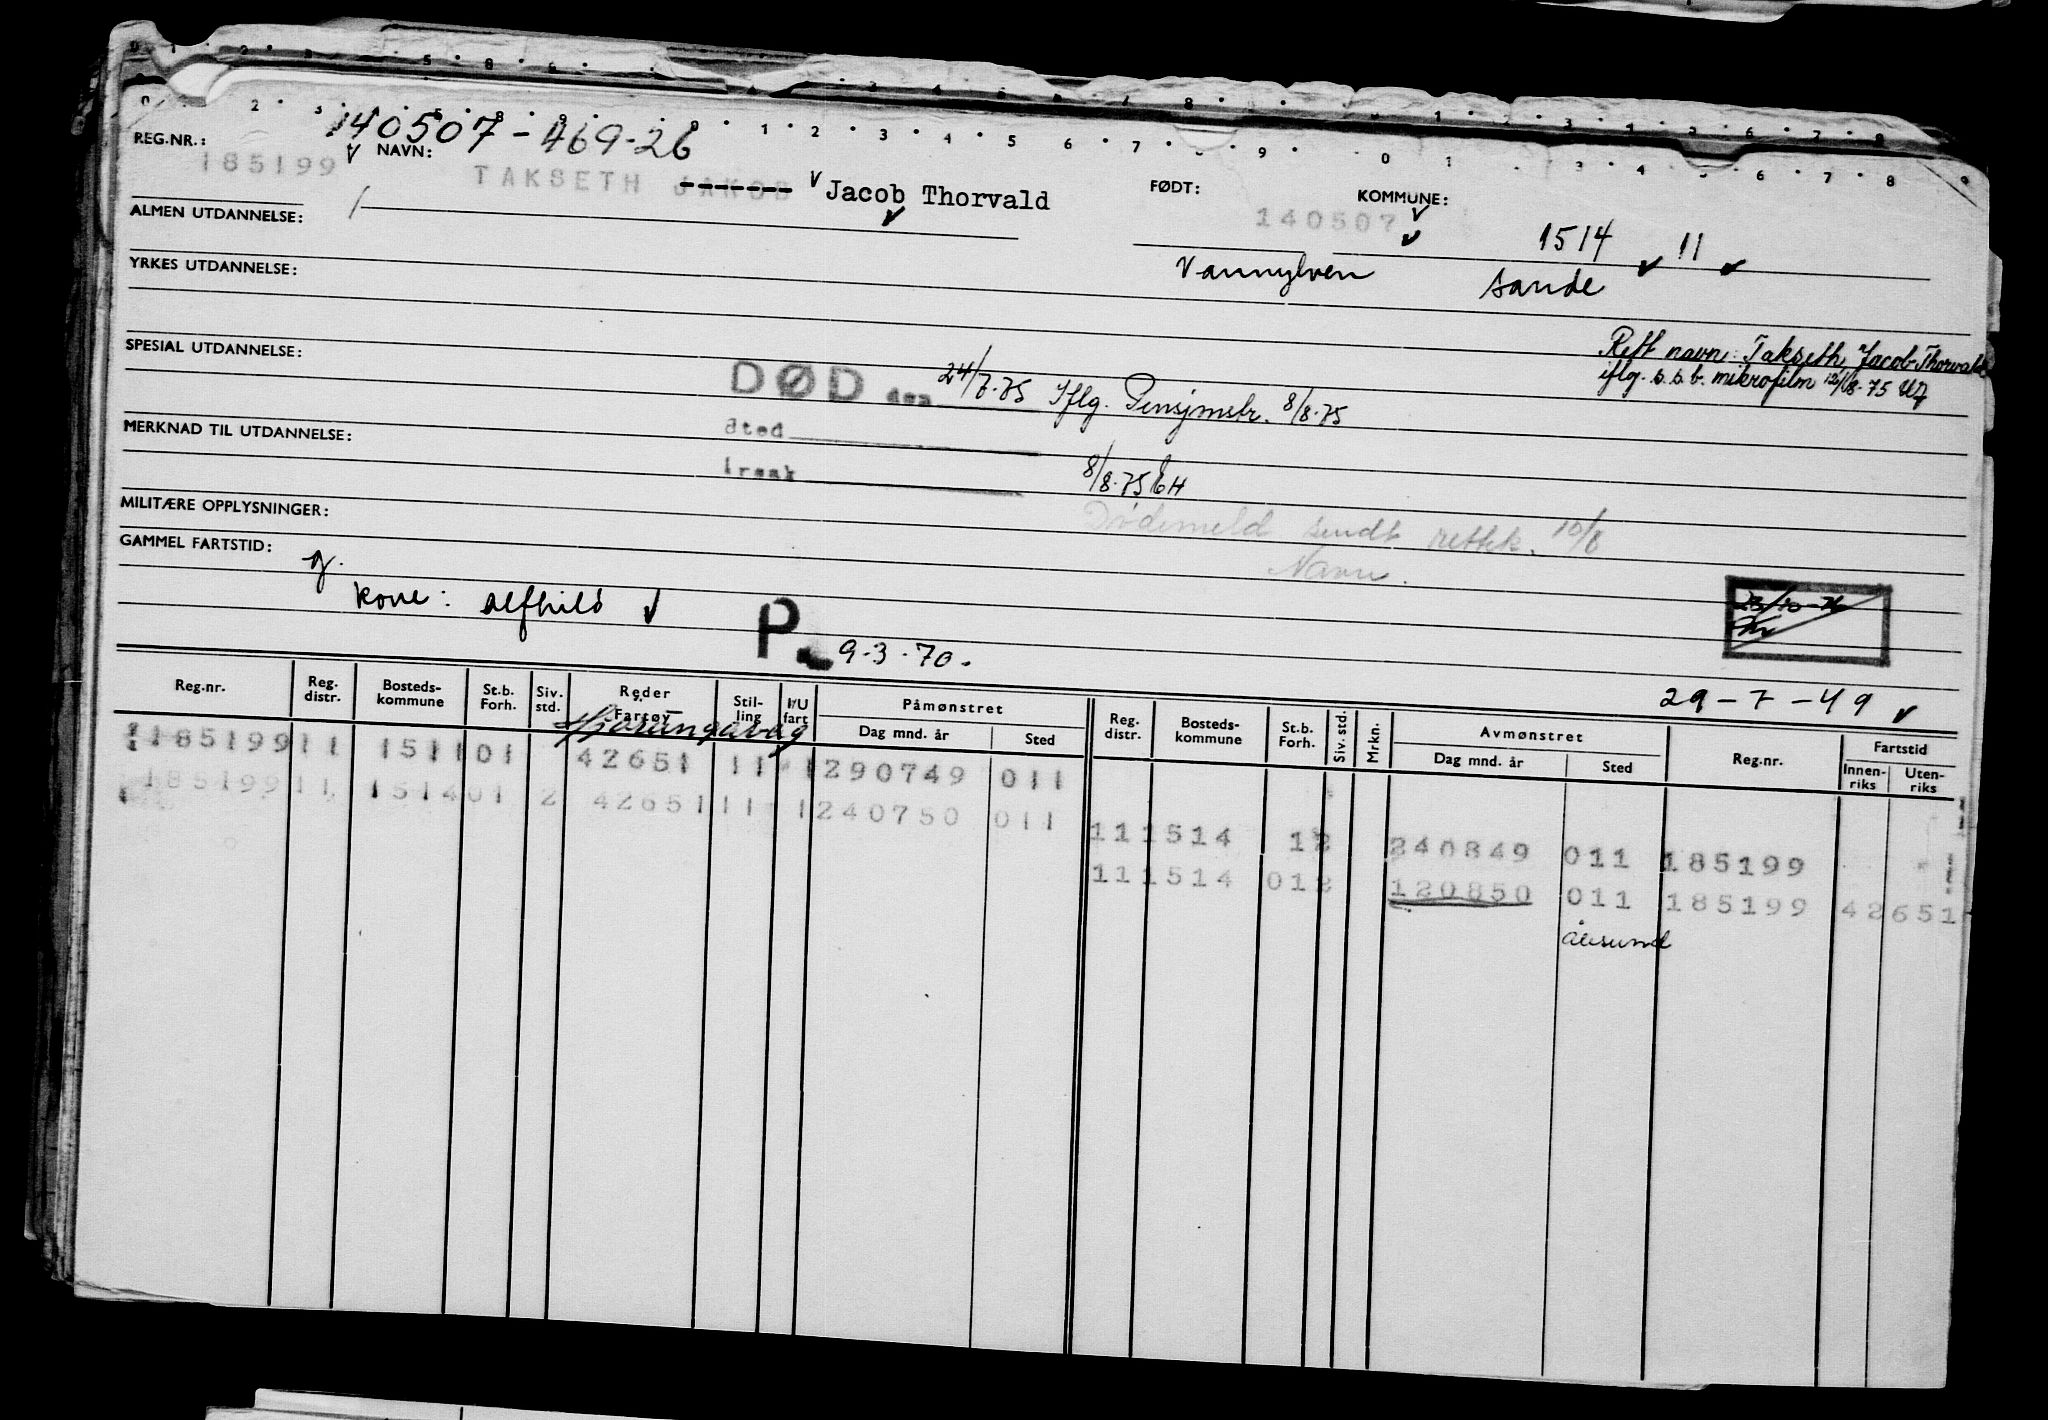 140507-469-26
REG.NR.: NAVN: FØDT: KOMMUNE:
185199 TAKSETH JAKOB Jacob Thorvald 140507 1514 11
ALMEN UTDANNELSE:
Vannylven Sande
YRKES UTDANNELSE:
Rett navn: Takseth, Jacob Thorvald
iflg. s.s.b. mikrofilm 12/8-75
SPESIAL UTDANNELSE:
DØD den 24/7-75 Iflg. Pensjmelr. 8/8-75
sted
MERKNAD TIL UTDANNELSE:
årsak 8/8-75
MILITÆRE OPPLYSNINGER:
Dødsmeld sendt rettk. 10/8
Navn.
GAMMEL FARTSTID:
g.
Kone: Alfhild
P. 9-3-70.
29-7-49
Reg.nr. Reg. distr. Bosteds-kommune St.b. Forh. Siv. std. Reder Fartøy Stil-ling I/U fart Påmønstret Dag mnd. år Sted Reg. distr. Bosteds-kommune St.b. Forh. Siv. std. Mrkn. Avmønstret Dag mnd. år Sted Reg.nr. Fartstid Innen-riks Uten-riks
Hjørungavåg
185199 11 1511 01 42651 11 1 290749 011
185199 11 1514 01 2 42651 11 1 240750 011
11 1514 12 240849 011 185199
11 1514 012 120850 011 185199 42651
Ålesund